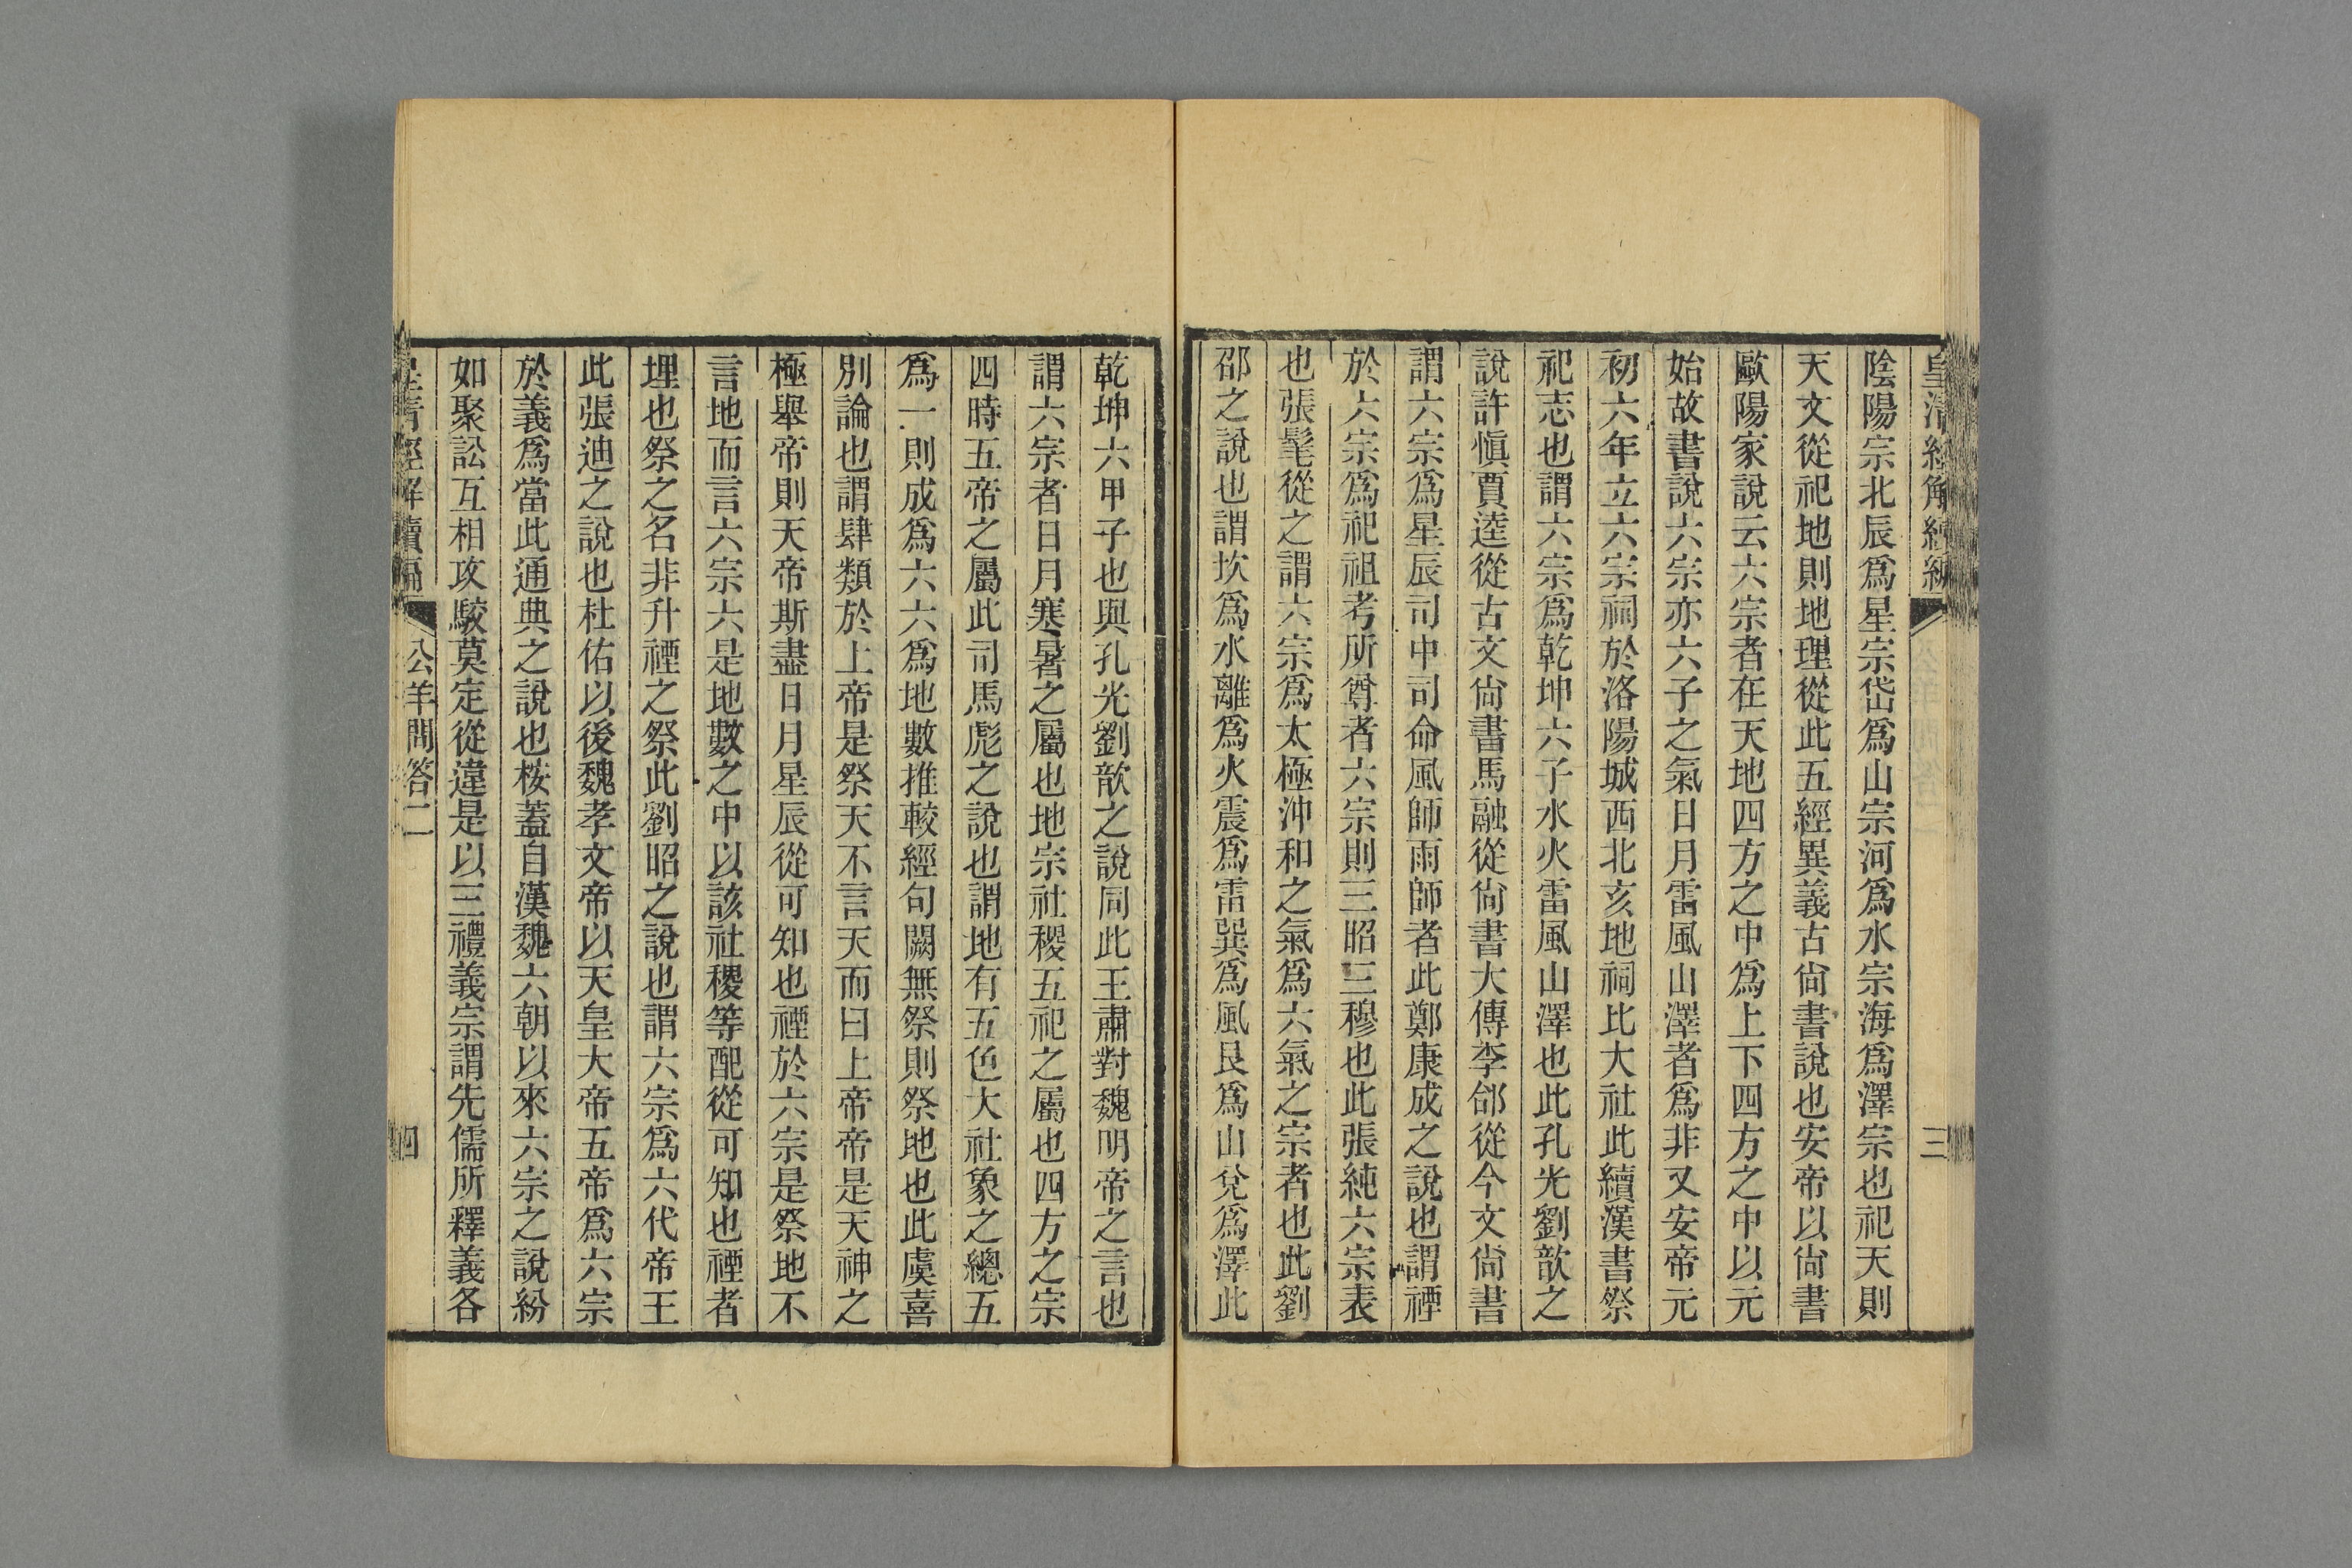 皇清經解續編
三
陰陽宗北辰爲星宗岱爲山宗河爲水宗海爲澤宗也祀天則
天文從祀地則地理從此五經異義古尙書說也安帝以尙書
歐陽家說云六宗者在天地四方之中爲上下四方之中以元
始故書說六宗亦六子之氣日月雷風山澤者爲非又安帝元
初六年立六宗祠於洛陽城西北亥地祠比大社此續漢書祭
祀志也謂六宗爲乾坤六子水火雷風山澤也此孔光劉歆之
說許愼賈逵從古文尙書馬融從尙書大傳李郃從今文尙書
謂六宗爲星辰司中司命風師雨師者此鄭康成之說也謂禋
於六宗爲祀祖考所尊者六宗則三昭三穆也此張純六宗表
也張髦從之謂六宗爲太極沖和之氣爲六氣之宗者也此劉
邵之說也謂坎爲水離爲火震爲雷巽爲風艮爲山兌爲澤此
乾坤六甲子也與孔光劉歆之說同此王肅對魏明帝之言也
謂六宗者日月寒暑之屬也地宗社稷五祀之屬也四方之宗
四時五帝之屬此司馬彪之說也謂地有五色大社象之總五
爲一則成爲六六爲地數推較經句闕無祭則祭地也此虞喜
別論也謂肆類於上帝是祭天不言天而曰上帝帝是天神之
極舉帝則天帝斯盡日月星辰從可知也禋於六宗是祭地不
言地而言六宗六是地數之中以該社稷等配從可知也禋者
埋也祭之名非升禋之祭此劉昭之說也謂六宗爲六代帝王
此張迪之說也杜佑以後魏孝文帝以天皇大帝五帝爲六宗
於義爲當此通典之說也桉蓋自漢魏六朝以來六宗之說紛
如聚訟互相攻駁莫定從違是以三禮義宗謂先儒所釋義各
皇清經解續編
公羊問答二
四